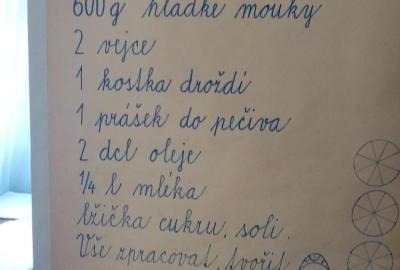 600 g hladké mouky
2 vejce
1 kostka droždí
1 prášek do pečiva
2 dcl oleje
¼ l mléka
lžička cukru, soli.
Vše zpracovat, tvořit